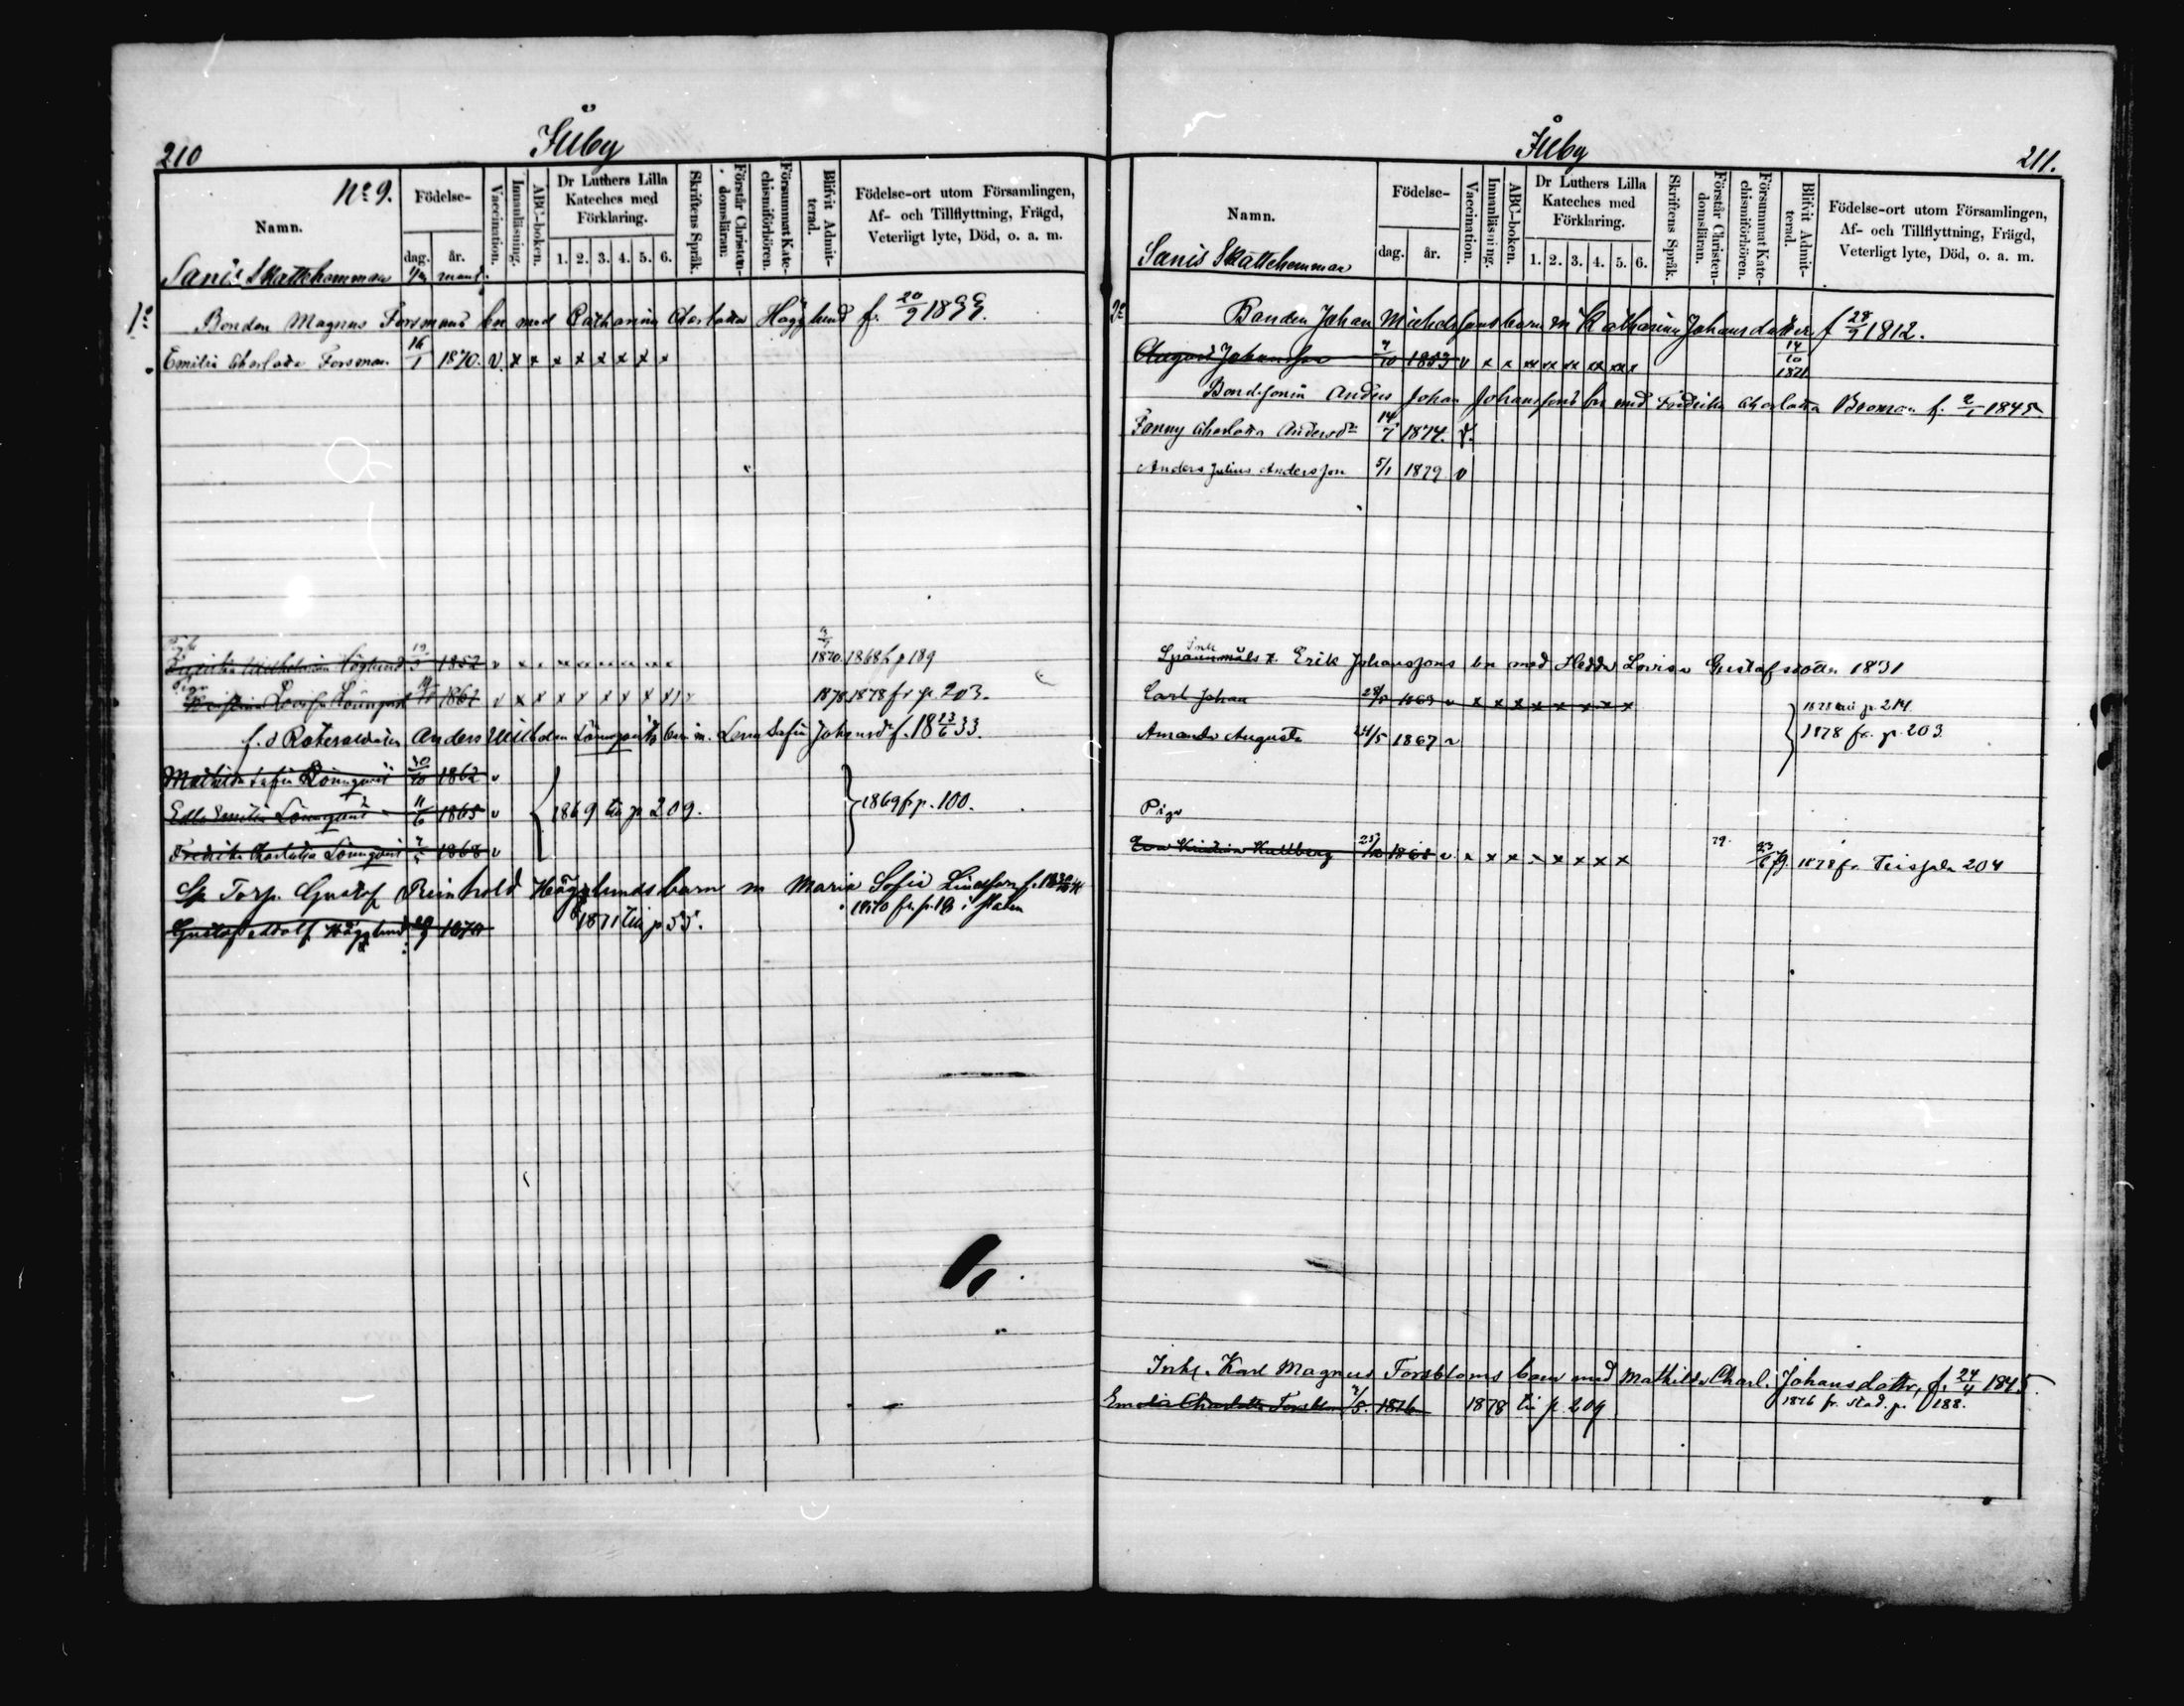 210
Åby
No 9.
Namn.
Födelse-
dag.
år.
Vaccination.
Innanläsning.
ABC-boken.
Dr Luthers Lilla
Kateches med
Förklaring.
1. 2. 3. 4. 5. 6.
Skriftens Språk.
Förstår Christen-
domsläran.
Försummat Kate-
chismiförhören.
Blifvit Admit-
terad.
Födelse-ort utom Församlingen,
Af- och Tillflyttning, Frägd,
Veterligt lyte, Död, o. a. m.
Sanis Skattehemman mant.
1o Bonden Magnus Forsmans bn med Catharina Charlotta Hägglund f. 20/9
Emilia Charlotta Forsman 16/1 1870. v. x x x x x x x x
Wilhelmina Höglund 1852 v x 1870. 1868 f p 189
Lovisa Lönnqvist 1862 v x x x x x x x 1878 1878 fr p. 203.
f. d Rotesoldaten Anders Wilhelm Lönnqvists barn m. Lena Sofia Johansdr f. 18 33.
Mathilda Sofia Lönnqvist 30/10 1862 v
Edla Emilia Lönnqvist 11/6 1865 v 1869 till p 209. 1869 fr p. 100.
Fredrika Charlotta Lönnqvist 1868 v
Torp. Gustaf Reinhold Hägglunds barn m Maria Sofia
1871 till p 55. 1870 fr. p. 18 i staden
Gustaf Adolf Hägglund
Åby
211.
Namn.
Födelse-
dag.
år.
Vaccination.
Innanläsning.
ABC-boken.
Dr Luthers Lilla
Kateches med
Förklaring.
1. 2. 3. 4. 5. 6.
Skriftens Språk.
Förstår Christen-
domsläran.
Försummat Kate-
chismiförhören.
Blifvit Admit-
terad.
Födelse-ort utom Församlingen,
Af- och Tillflyttning, Frägd,
Veterligt lyte, Död, o. a. m.
Sanis Skattehemman
2o Bonden Johan Michelssons barn m Katharina Johansdotter f 28/9 1812.
August Johansson 7/10 1853 v x x xx xx xx xx xxx 14/10 1871
Bondesonen Anders Johan Johanssons bn med Fredrika Charlotta Broman f. 2/1 1845
Fanny Charlotta Andersdr 14/7 1874. v.
Anders Julius Andersson 5/1 1879 v
Inh
Erik Johanssons bn med Hedda Lovisa Gustafsdotter 1831
Carl Johan 28/8 1863 v x x x x x x x x
1878 till p. 214
Amanda Augusta 24/5 1867 v 1878 fr. p. 203
Piga
Eva Kristina Kullberg 25/10 v x x x x x x x x 79. 1878 fr. p 204
Inhs. Karl Magnus Forsbloms barn med Mathilda Charl. Johansdotter, f. 24/4 1845.
1876 fr. stad. p. 188.
Emelia Charlotta Forsblom 7/5. 1876 1878 till p 209